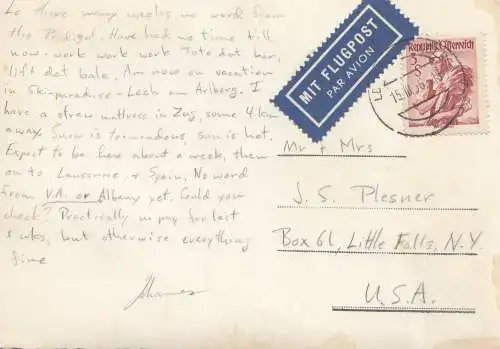 Lo these many weeks no word from
the Prodigal. Have had no time till
now - work work work Tote dat bar,
lift dat bale. Am now on vacation
in Ski-paradise - Lech am Arlberg. I
have a straw mattress in Zug, some 4 km
away. Snow is tremendous, sun is hot.
Expect to be here about a week, then
on to Lausanne & Spain. No word
from V.A. or Albany yet. Could you
check? Practically no pay for last
wks, but otherwise everything
fine
Johannes
MIT FLUGPOST
PAR AVION
Republik Österreich
3
S
15.III.
Mr & Mrs
J. S. Plesner
Box 61, Little Falls, N.Y.
U.S.A.